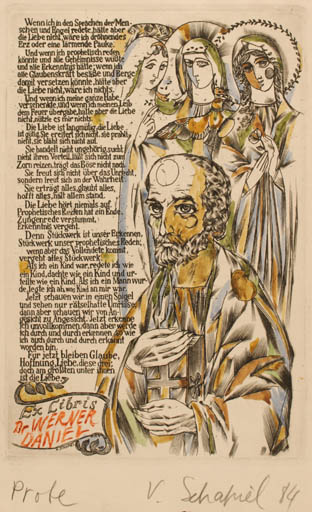 Wenn ich in den Sprachen der Men-
schen und Engel redete, hätte aber
die Liebe nicht, wäre ich dröhnendes
Erz oder eine lärmende Pauke.
Und wenn ich prophetisch reden
könnte und alle Geheimnisse wüßte
und alle Erkenntnis hätte; wenn ich
alle Glaubenskraft besäße und Berge
damit versetzen könnte, hätte aber
die Liebe nicht, wäre ich nichts.
Und wenn ich meine ganze Habe
verschenkte, und wenn ich meinen Leib
dem Feuer übergäbe, hätte aber die Liebe
nicht, nützte es mir nichts.
Die Liebe ist langmütig, die Liebe
ist gütig. Sie ereifert sich nicht, sie prahlt
nicht, sie bläht sich nicht auf.
Sie handelt nicht ungehörig, sucht
nicht ihren Vorteil, läßt sich nicht zum
Zorn reizen, trägt das Böse nicht nach.
Sie freut sich nicht über das Unrecht,
sondern freut sich an der Wahrheit.
Sie erträgt alles, glaubt alles,
hofft alles, hält allem stand.
Die Liebe hört niemals auf.
Prophetisches Reden hat ein Ende,
Zungenrede verstummt,
Erkenntnis vergeht.
Denn Stückwerk ist unser Erkennen,
Stückwerk unser prophetisches Reden;
wenn aber das Vollendete kommt,
vergeht alles Stückwerk.
Als ich ein Kind war, redete ich wie
ein Kind, dachte wie ein Kind und ur-
teilte wie ein Kind. Als ich ein Mann wur-
de, legte ich ab, was Kind an mir war.
Jetzt schauen wir in einen Spiegel
und sehen nur rätselhafte Umrisse,
dann aber schauen wir von An-
gesicht zu Angesicht. Jetzt erkenne
ich unvollkommen, dann aber werde
ich durch und durch erkennen, so wie
ich auch durch und durch erkannt
worden bin.
Für jetzt bleiben Glaube,
Hoffnung, Liebe, diese drei;
doch am größten unter ihnen
ist die Liebe.
Ex Libris
Dr. WERNER
DANIEL
Probe V. Schapiel 84